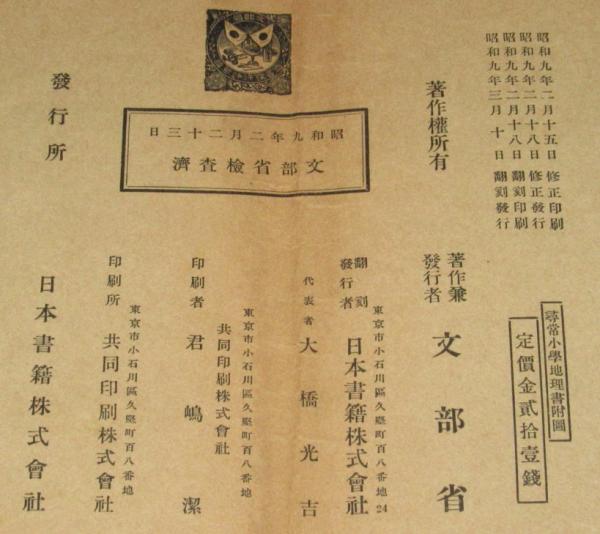 昭和九年二月十五日 修正印刷
昭和九年二月十八日 修正發行
昭和九年二月十八日 翻刻印刷
昭和九年三月十日 翻刻發行
著作權所有
昭和九年二月二十三日
文部省檢査濟
發行所
尋常小學地理書附圖
定價金貳拾壹錢
著作兼
發行者
文部省
東京市小石川區久堅町百八番地
24
翻刻
發行者
日本書籍株式會社
代表者
大橋光吉
東京市小石川區久堅町百八番地
共同印刷株式會社
印刷者
君嶋潔
東京市小石川區久堅町百八番地
印刷所
共同印刷株式會社
日本書籍株式會社